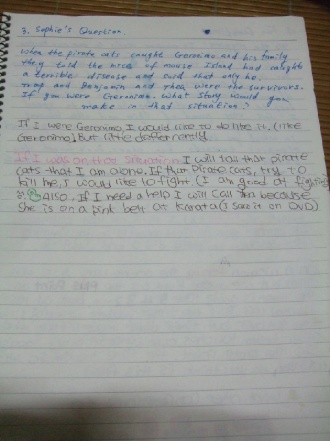 3. Sophie's Question
When the pirate cats caught Geronimo and his family
they told the mice of mouse island had caught
a terrible disease and said that only he,
Trap and Benjamin and Thea were the survivors.
If you were Geronimo, what story would you
make in that situation?
If I were Geronimo, I would like to do like it. (like
Geronimo) But little differently.
If I was on that situation I will tell that pirate
cats that I am alone. If that pirate cats, try to
kill me, I would like to fight. (I am good at fighting
Also, If I need a help I will call because
she is on a pink belt at karata (I saw it on DVD)